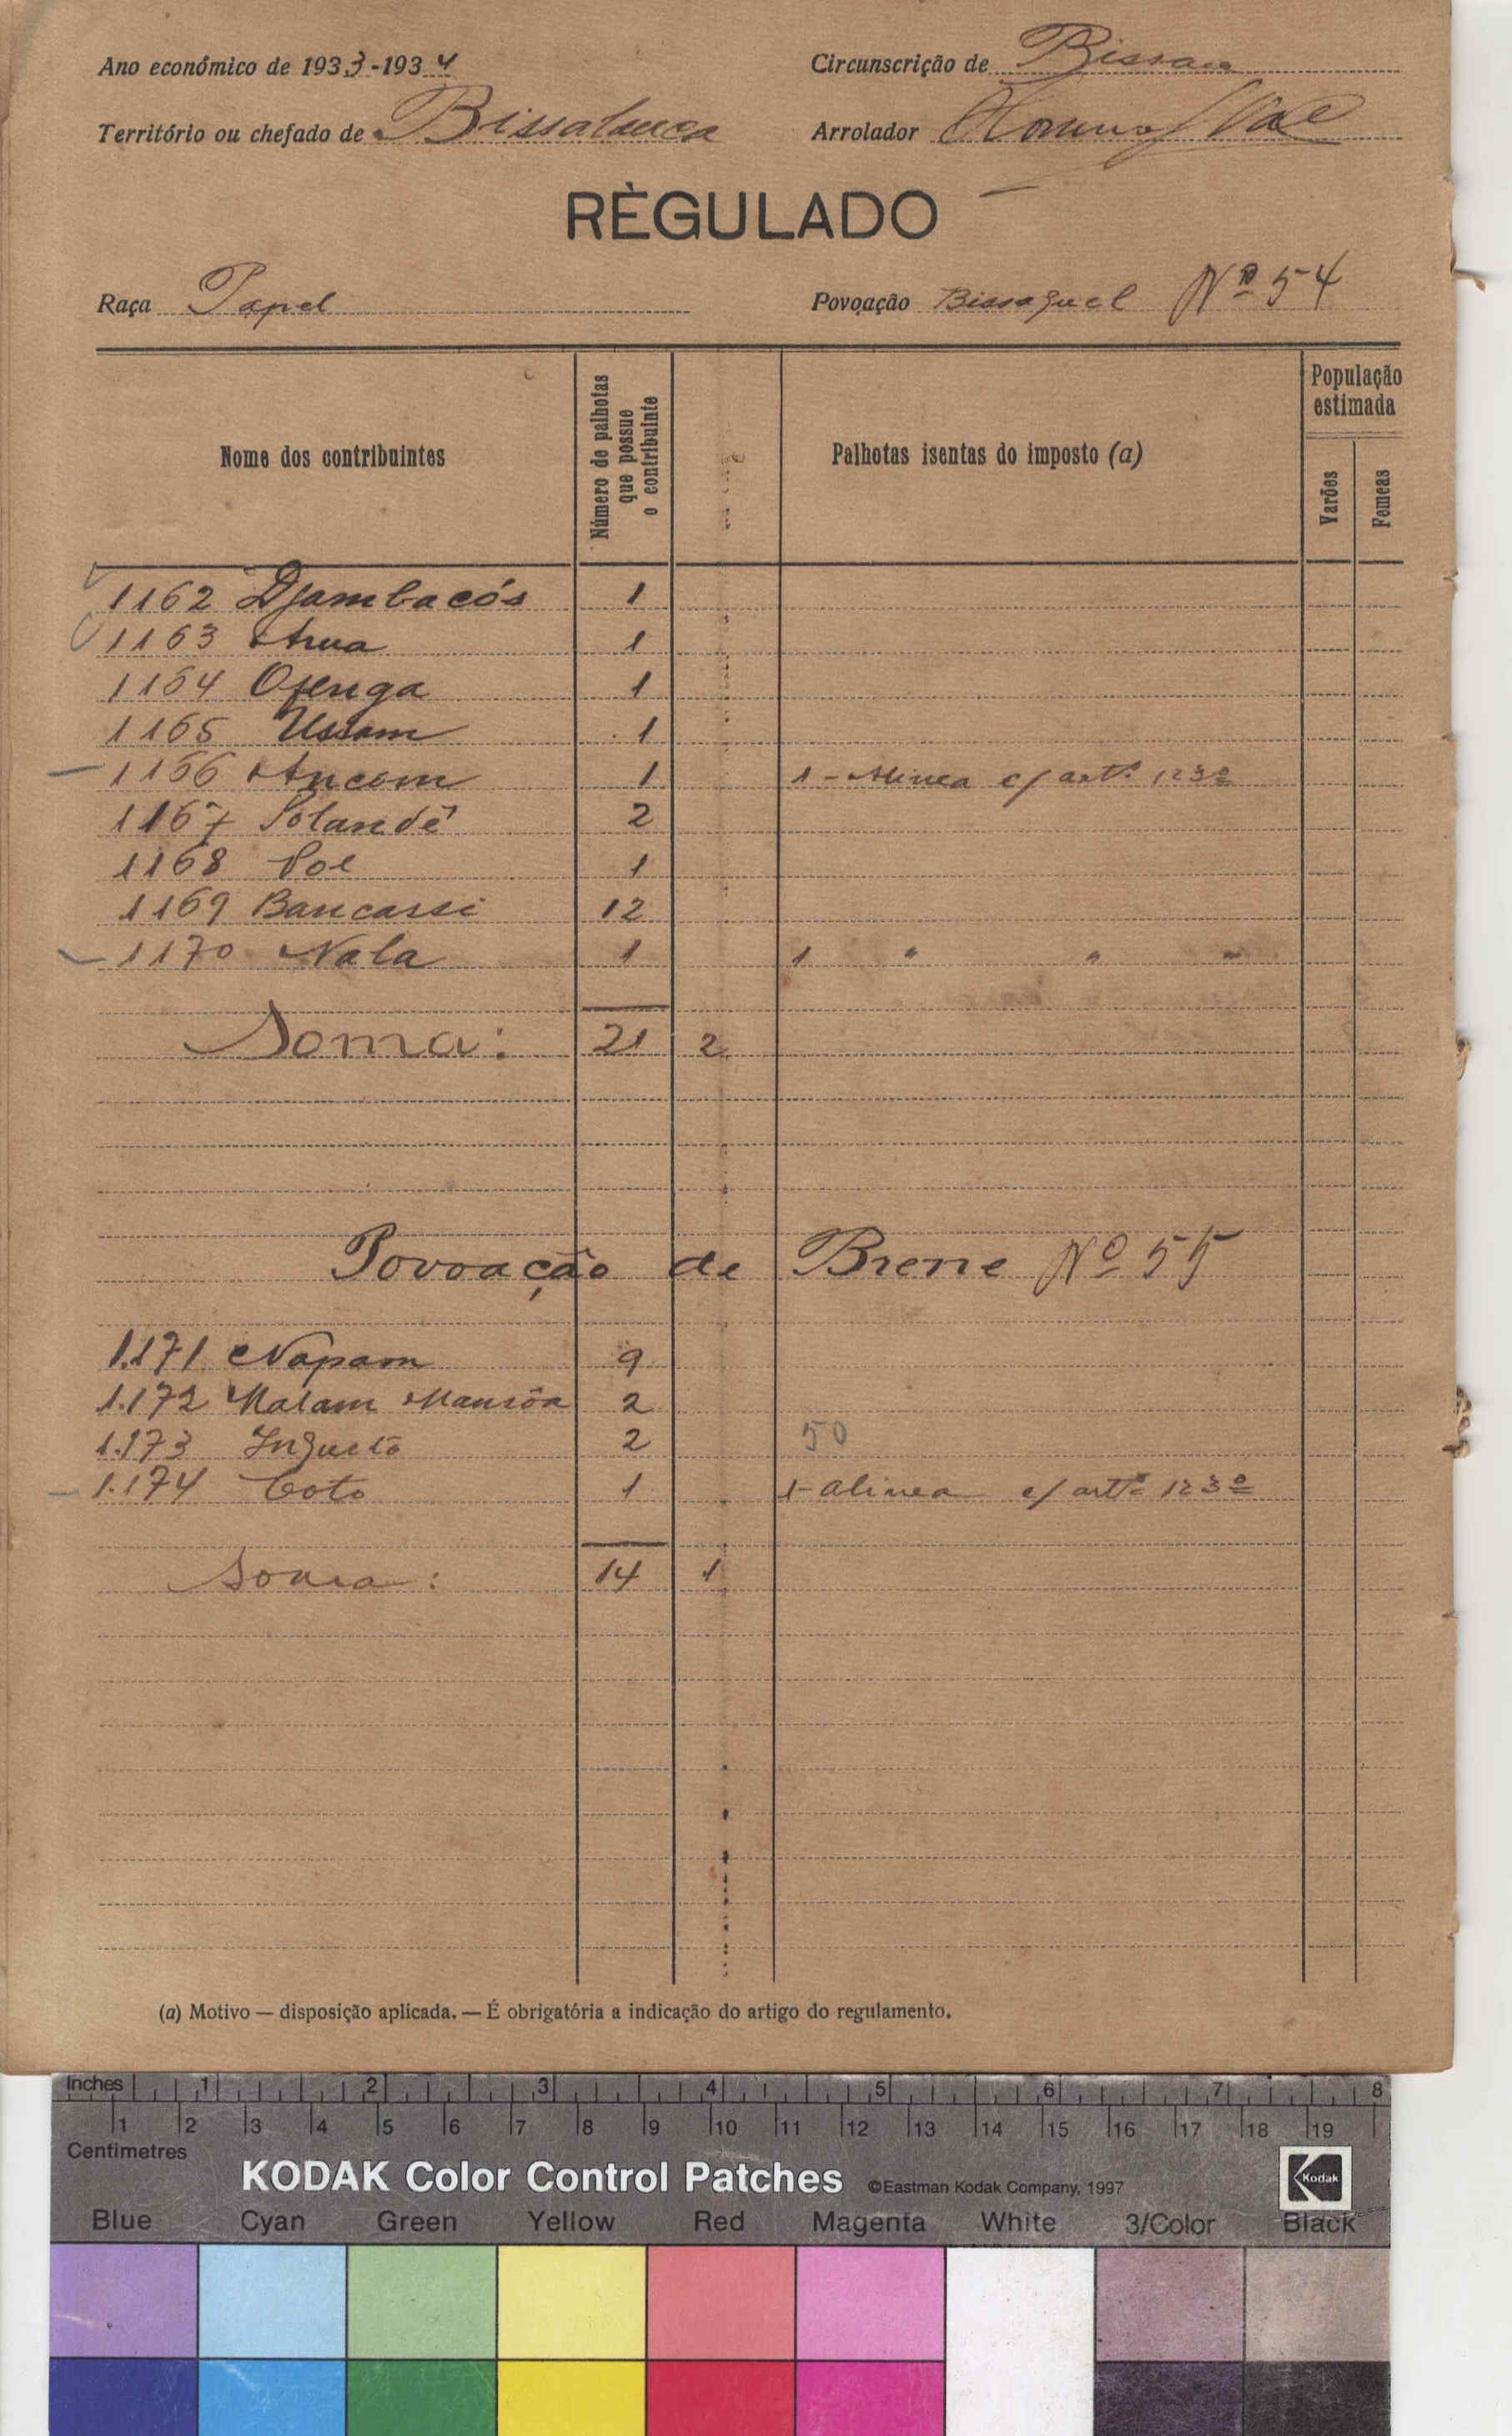 Ano económico de 1933-1934
Circunscrição de Bissau
Território ou chefado de Bissalanca
Arrolador
RÈGULADO
Raça Papel
Povoação Bissaguel Nº 54
Nome dos contribuintes
Número de palhotas que possue o contribuinte
Palhotas isentas do imposto (a)
População estimada
Varões
Femeas
1162 Djambacós 1
1163 Arua 1
1164 Ofenga 1
1165 Ussam 1
1166 Ancom 1 1 - Alinea c/ artº 123º
1167 Solandê 2
1168 Poe 1
1169 Bancassi 12
1170 Nala 1 1 " " "
Soma: 21 2
Povoação de Brene Nº 55
1.171 Napam 9
1.172 Malam Mansôa 2
1.173 Ingustô 2 50
1.174 Coto 1 1- alinea c/ artº 123º
Soma: 14 1
(a) Motivo — disposição aplicada. — É obrigatória a indicação do artigo do regulamento.
Inches 1 2 3 4 5 6 7 8
1 2 3 4 5 6 7 8 9 10 11 12 13 14 15 16 17 18 19
Centimetres
KODAK Color Control Patches ©Eastman Kodak Company, 1997 Kodak
Blue Cyan Green Yellow Red Magenta White 3/Color Black